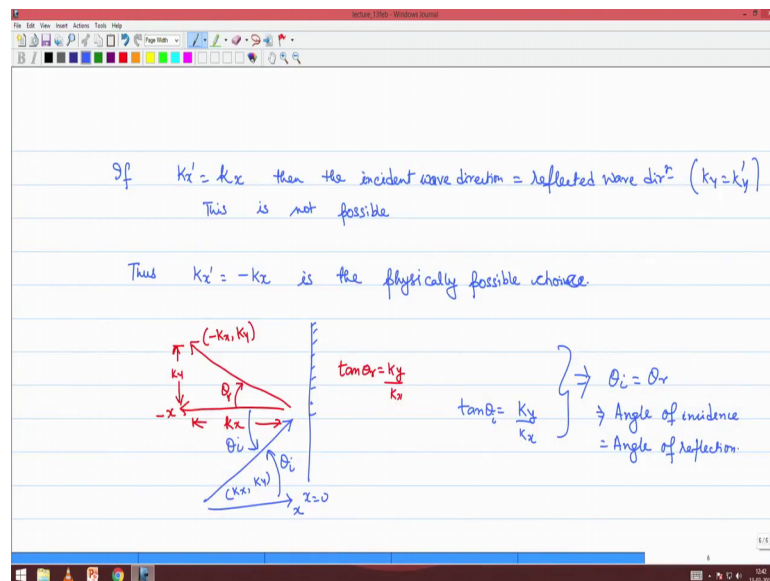 lecture_13feb - Windows Journal
File Edit View Insert Actions Tools Help
Page Width
B I
If Kx' = kx then the incident wave direction = reflected wave dirⁿ (ky = k'y)
This is not possible
Thus Kx' = -Kx is the physically possible choice.
(-Kx, Ky)
Ky
θr
-x
Kx
θi
θi
(Kx, Ky)
x
x=0
tanθr = Ky/Kx
tanθi = Ky/Kx
⇒ θi = θr
⇒ Angle of incidence
= Angle of reflection.
6/6
6
12:42